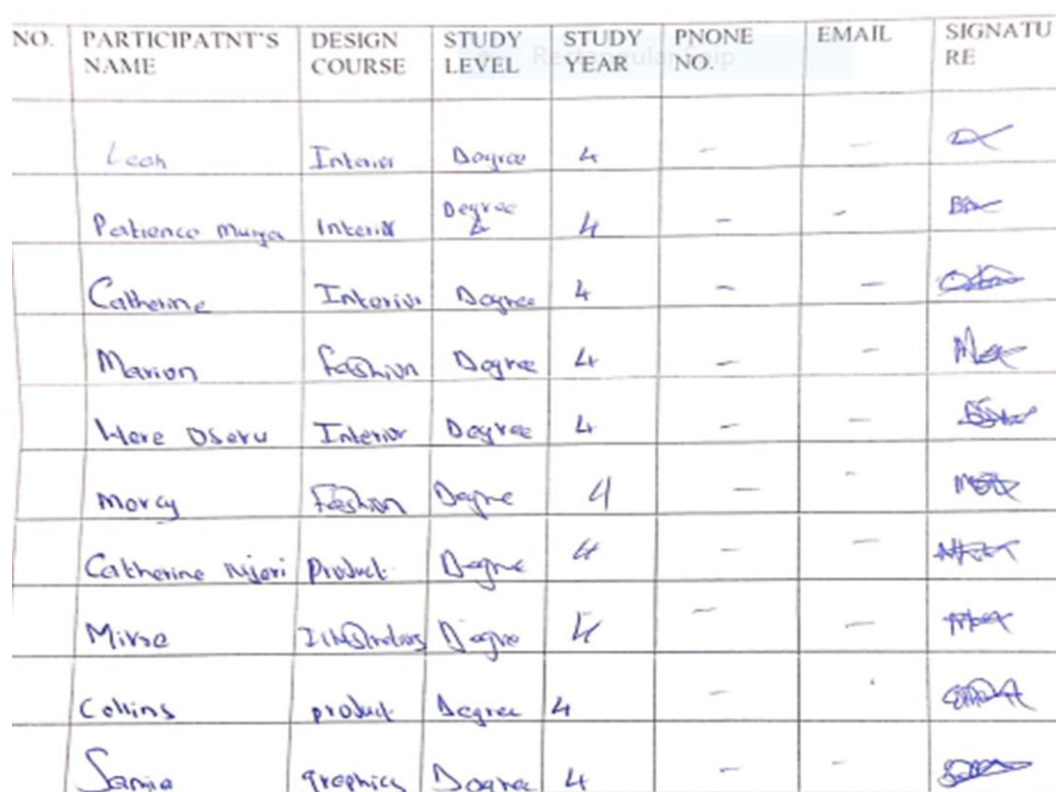 NO. PARTICIPATNT'S NAME DESIGN COURSE STUDY LEVEL STUDY YEAR PNONE NO. EMAIL SIGNATURE
Leah Interior Degree 4 - -
Patience Interior Degree 4 4 - -
Catherine Interior Degree 4 - -
Marion Fashion Degree 4 - -
Here Oseru Interior Degree 4 - -
Mercy Fashion Degree 4 - -
Catherine Njeri product Degree 4 - -
Degree 4 - -
Collins product Degree 4 - -
Samia graphics Degree 4 - -